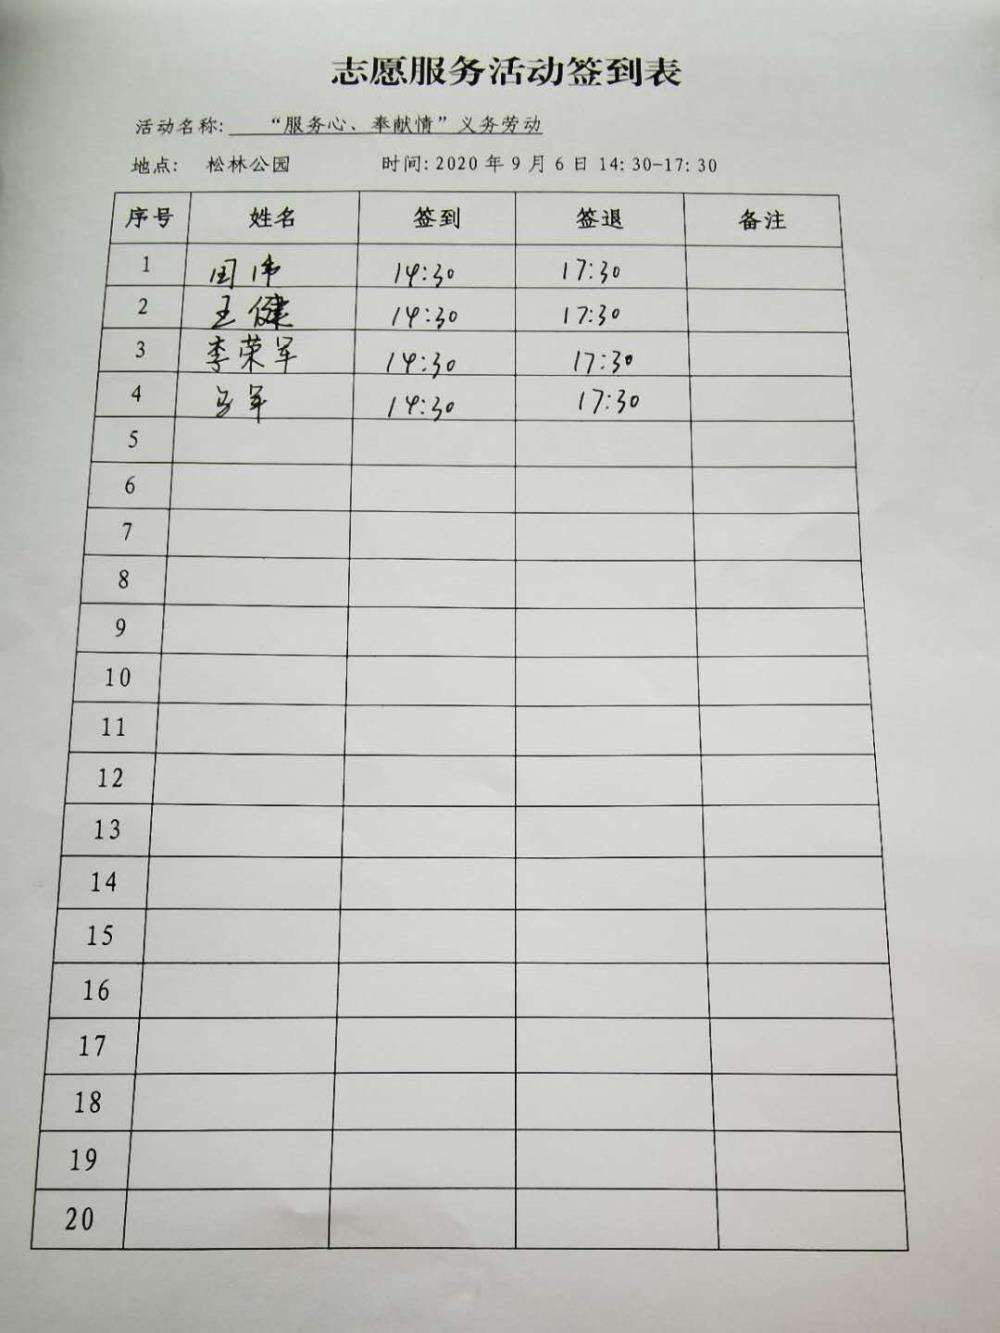 志愿服务活动签到表
活动名称: “服务心、奉献情”义务劳动
地点: 松林公园 时间: 2020 年 9 月 6 日 14: 30-17: 30
序号 姓名 签到 签退 备注
1 伟 14:30 17:30
2 王健 14:30 17:30
3 李荣军 14:30 17:30
4 军 14:30 17:30
5
6
7
8
9
10
11
12
13
14
15
16
17
18
19
20